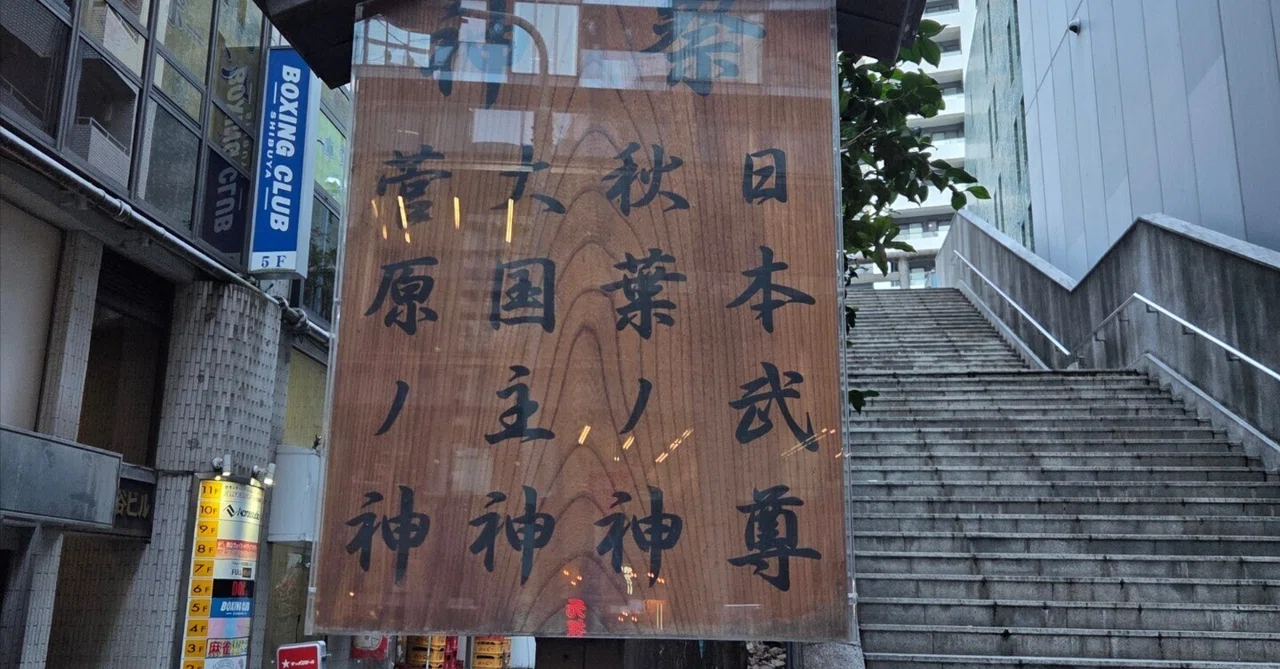 祭神
日本武尊
秋葉ノ神
大国主神
菅原ノ神
BOXING CLUB
SHIBUYA
5F
谷ビル
11F
10F
9F
8F
7F
6F
5F
BOXING CLUB
4F
3F
麻雀